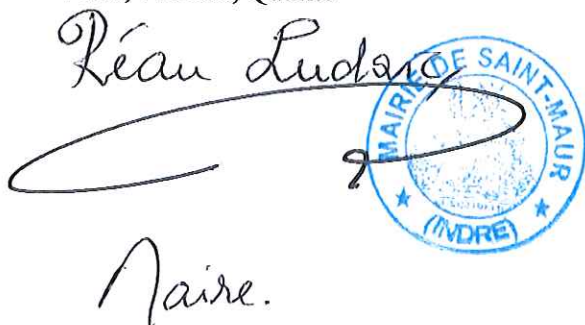 Réau Ludovic
MAIRIE DE SAINT-MAUR
(INDRE)
Maire.